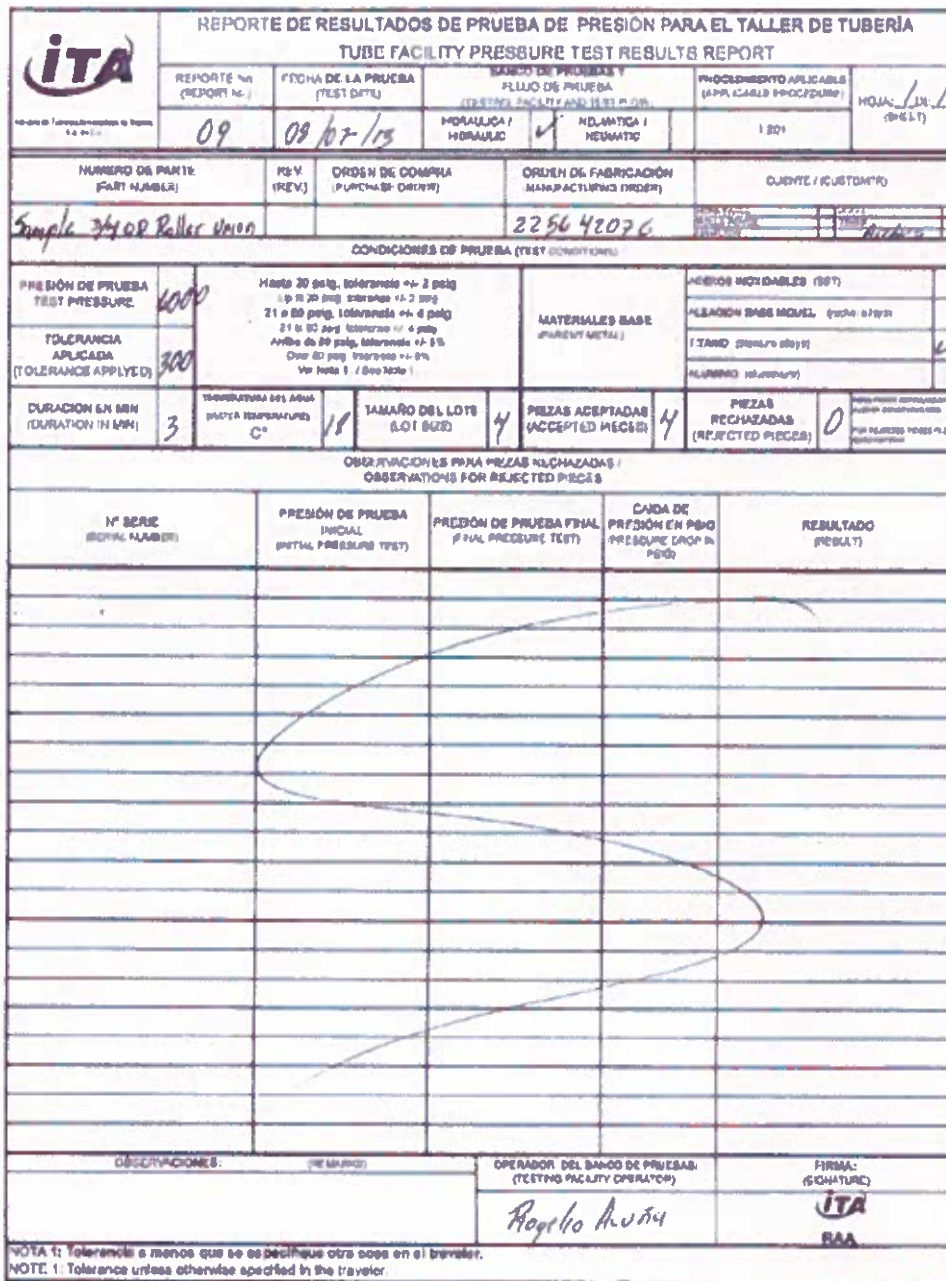 iTA
REPORTE DE RESULTADOS DE PRUEBA DE PRESIÓN PARA EL TALLER DE TUBERÍA
TUBE FACILITY PRESSURE TEST RESULTS REPORT
REPORTE No
(REPORT No.)
09
FECHA DE LA PRUEBA
(TEST DATE)
BANCO DE PRUEBAS Y
FLUJO DE PRUEBA
HIDRAULICA /
HIDRAULIC
✓
NEUMATICA /
NEUMATIC
PROCEDIMIENTO APLICABLE
(APPLICABLE PROCEDURE)
HOJA: 1
(SHEET)
NUMERO DE PARTE
(PART NUMBER)
Sample 3/4 OD Roller Union
REV.
(REV.)
ORDEN DE COMPRA
(PURCHASE ORDER)
ORDEN DE FABRICACIÓN
(MANUFACTURING ORDER)
225642076
CLIENTE / (CUSTOMER)
CONDICIONES DE PRUEBA (TEST CONDITIONS)
PRESIÓN DE PRUEBA
TEST PRESSURE
6000
TOLERANCIA
APLICADA
(TOLERANCE APPLYED)
300
Hasta 20 psig, tolerancia +/- 2 psig
Up to 20 psig tolerance +/- 2 psig
21 a 80 psig, tolerancia +/- 4 psig
21 to 80 psig tolerance +/- 4 psig
Arriba de 80 psig, tolerancia +/- 5%
Over 80 psig tolerance +/- 5%
Ver Nota 1 / See Note 1
MATERIALES BASE
(PARENT METAL)
ACEROS INOXIDABLES (SST)
TITANIO
ALUMINIO
DURACIÓN EN MIN
(DURATION IN MIN)
3
TEMPERATURA DEL AGUA
(WATER TEMPERATURE)
C°
18
TAMAÑO DEL LOTE
(LOT SIZE)
4
PIEZAS ACEPTADAS
(ACCEPTED PIECES)
4
PIEZAS
RECHAZADAS
(REJECTED PIECES)
0
OBSERVACIONES PARA PIEZAS RECHAZADAS /
OBSERVATIONS FOR REJECTED PIECES
N° SERIE
(SERIAL NUMBER)
PRESIÓN DE PRUEBA
INICIAL
(INITIAL PRESSURE TEST)
PRESIÓN DE PRUEBA FINAL
(FINAL PRESSURE TEST)
CAIDA DE
PRESIÓN EN PSIG
(PRESSURE DROP IN
PSIG)
RESULTADO
(RESULT)
OBSERVACIONES:
(REMARKS)
OPERADOR DEL BANCO DE PRUEBAS:
(TESTING FACILITY OPERATOR)
Rogelio Acuña
FIRMA:
(SIGNATURE)
iTA
RAA
NOTA 1: Tolerancia a menos que se especifique otra cosa en el traveler.
NOTE 1: Tolerance unless otherwise specified in the traveler.